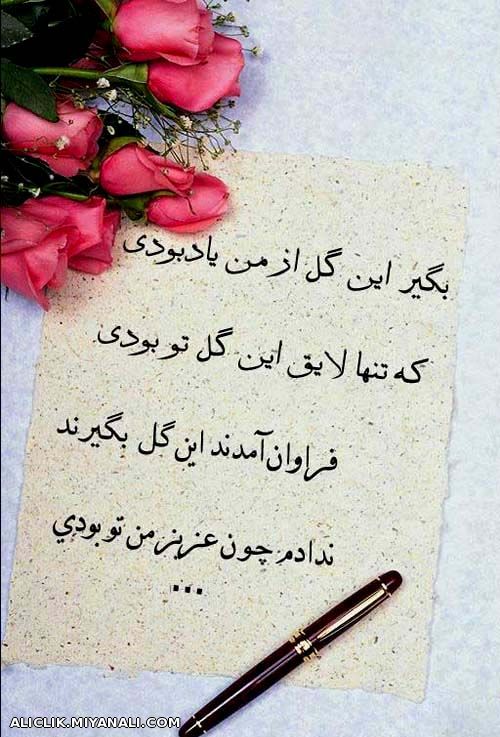 بگیر این گل از من یادبودی
که تنها لایق این گل تو بودی
فراوان آمدند این گل بگیرند
ندادم چون عزیز من تو بودي
...
ALICLIK.MIYANALI.COM